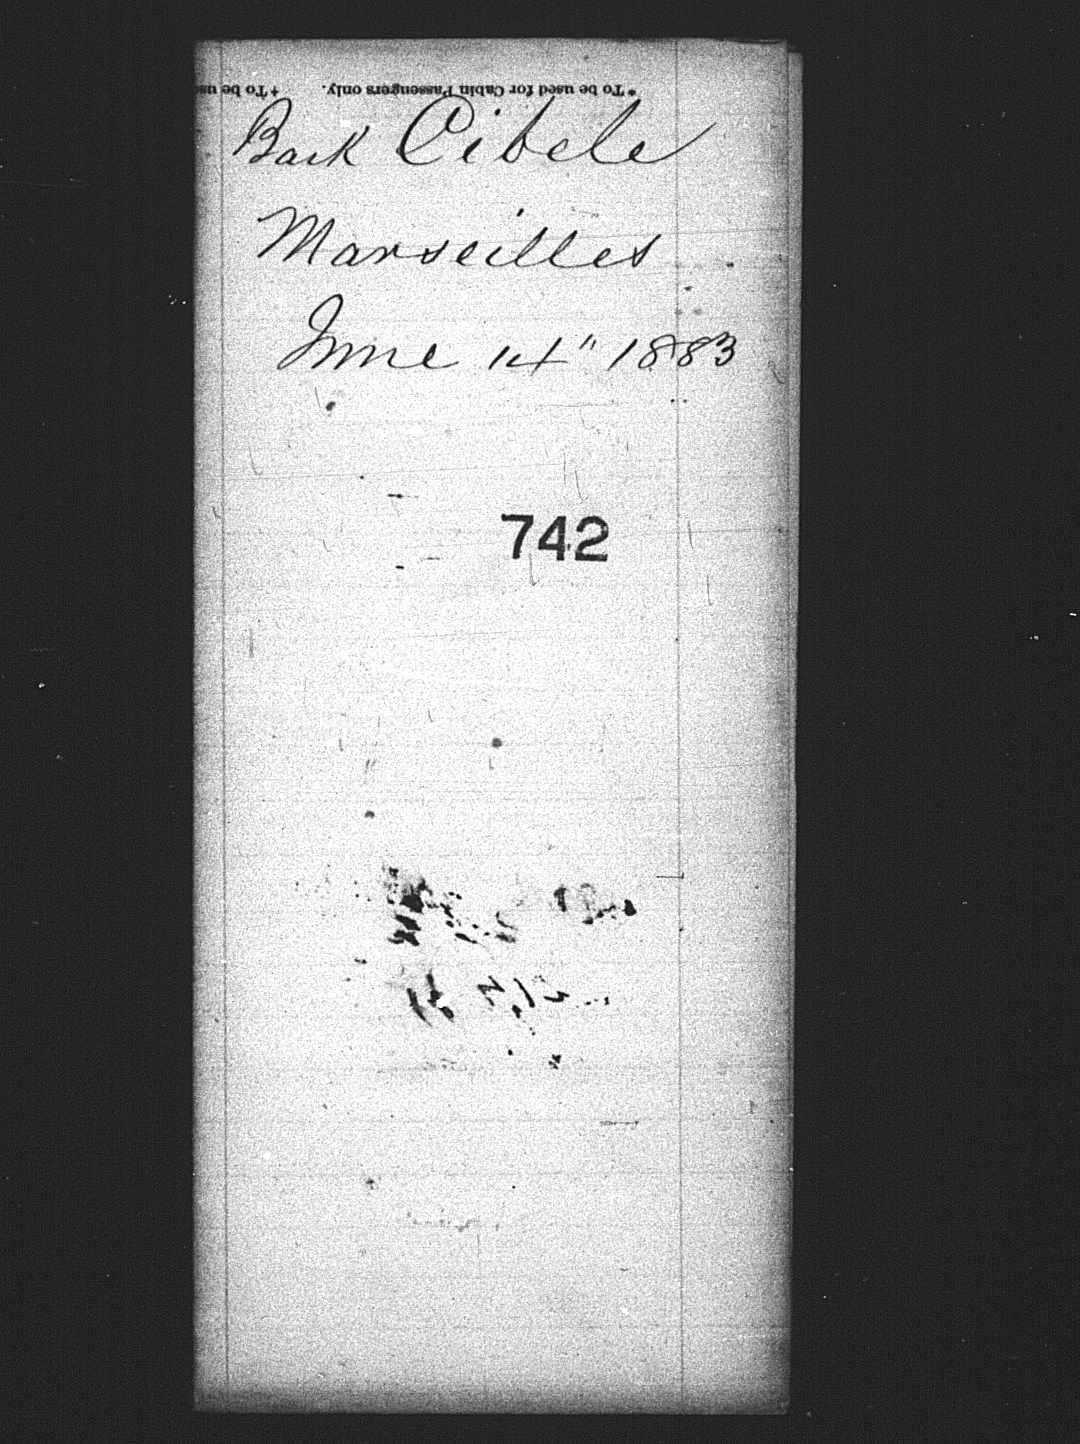 *To be used for Cabin Passengers only. †To be us
Bark Cibele
Marseilles
June 14" 1883
742